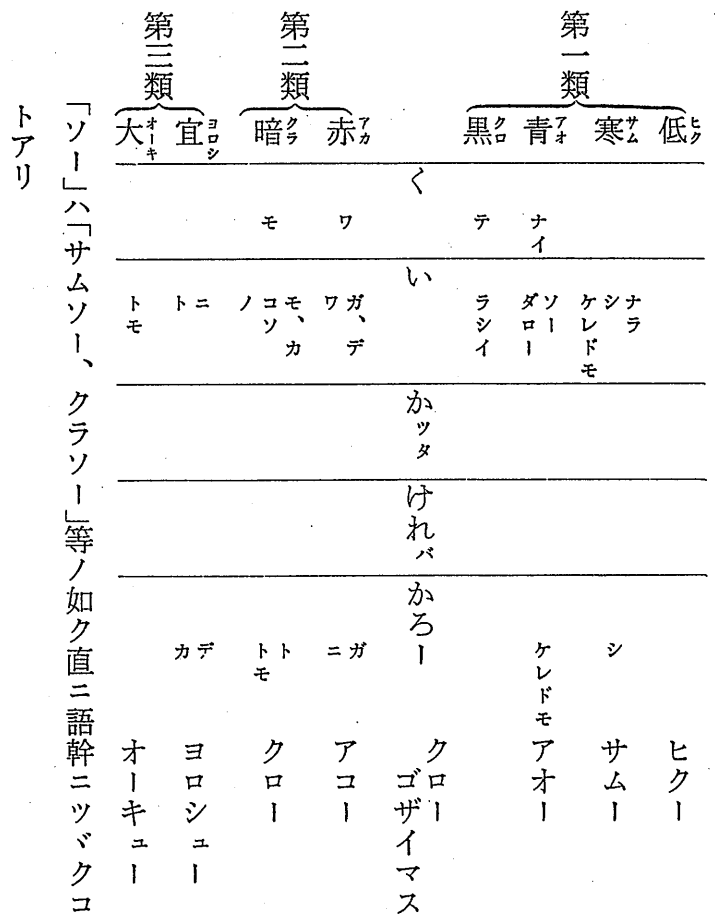 第一類
低ヒク
寒サム
青アオ
黒クロ
第二類
赤アカ
暗クラ
第三類
宜ヨロシ
大オーキ
く
ナイ
テ
ワ
モ
い
ナラ
シ
ケレドモ
ソー
ダロー
ラシイ
ガ、デ
ワ
モ、カ
コソ
ノ
ニ
ト
トモ
かッタ
けれバ
かろー
シ
ケレドモ
ガ
ニ
ト
トモ
デ
カ
ヒクー
サムー
アオー
クロー
ゴザイマス
アコー
クロー
ヨロシュー
オーキュー
「ソー」ハ「サムソー、クラソー」等ノ如ク直ニ語幹ニツヾクコ
トアリ